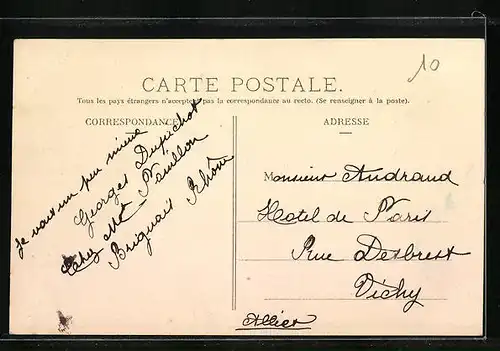 10
CARTE POSTALE.
Tous les pays étrangers n'acceptent pas la correspondance au recto. (Se renseigner à la poste).
CORRESPONDANCE
ADRESSE
Je vais un peu mieux
Georges Dupuchot
Chez Mme
Brignais Rhône
Monsieur Andraud
Hotel de Paris
Rue Desbrest
Vichy
Allier